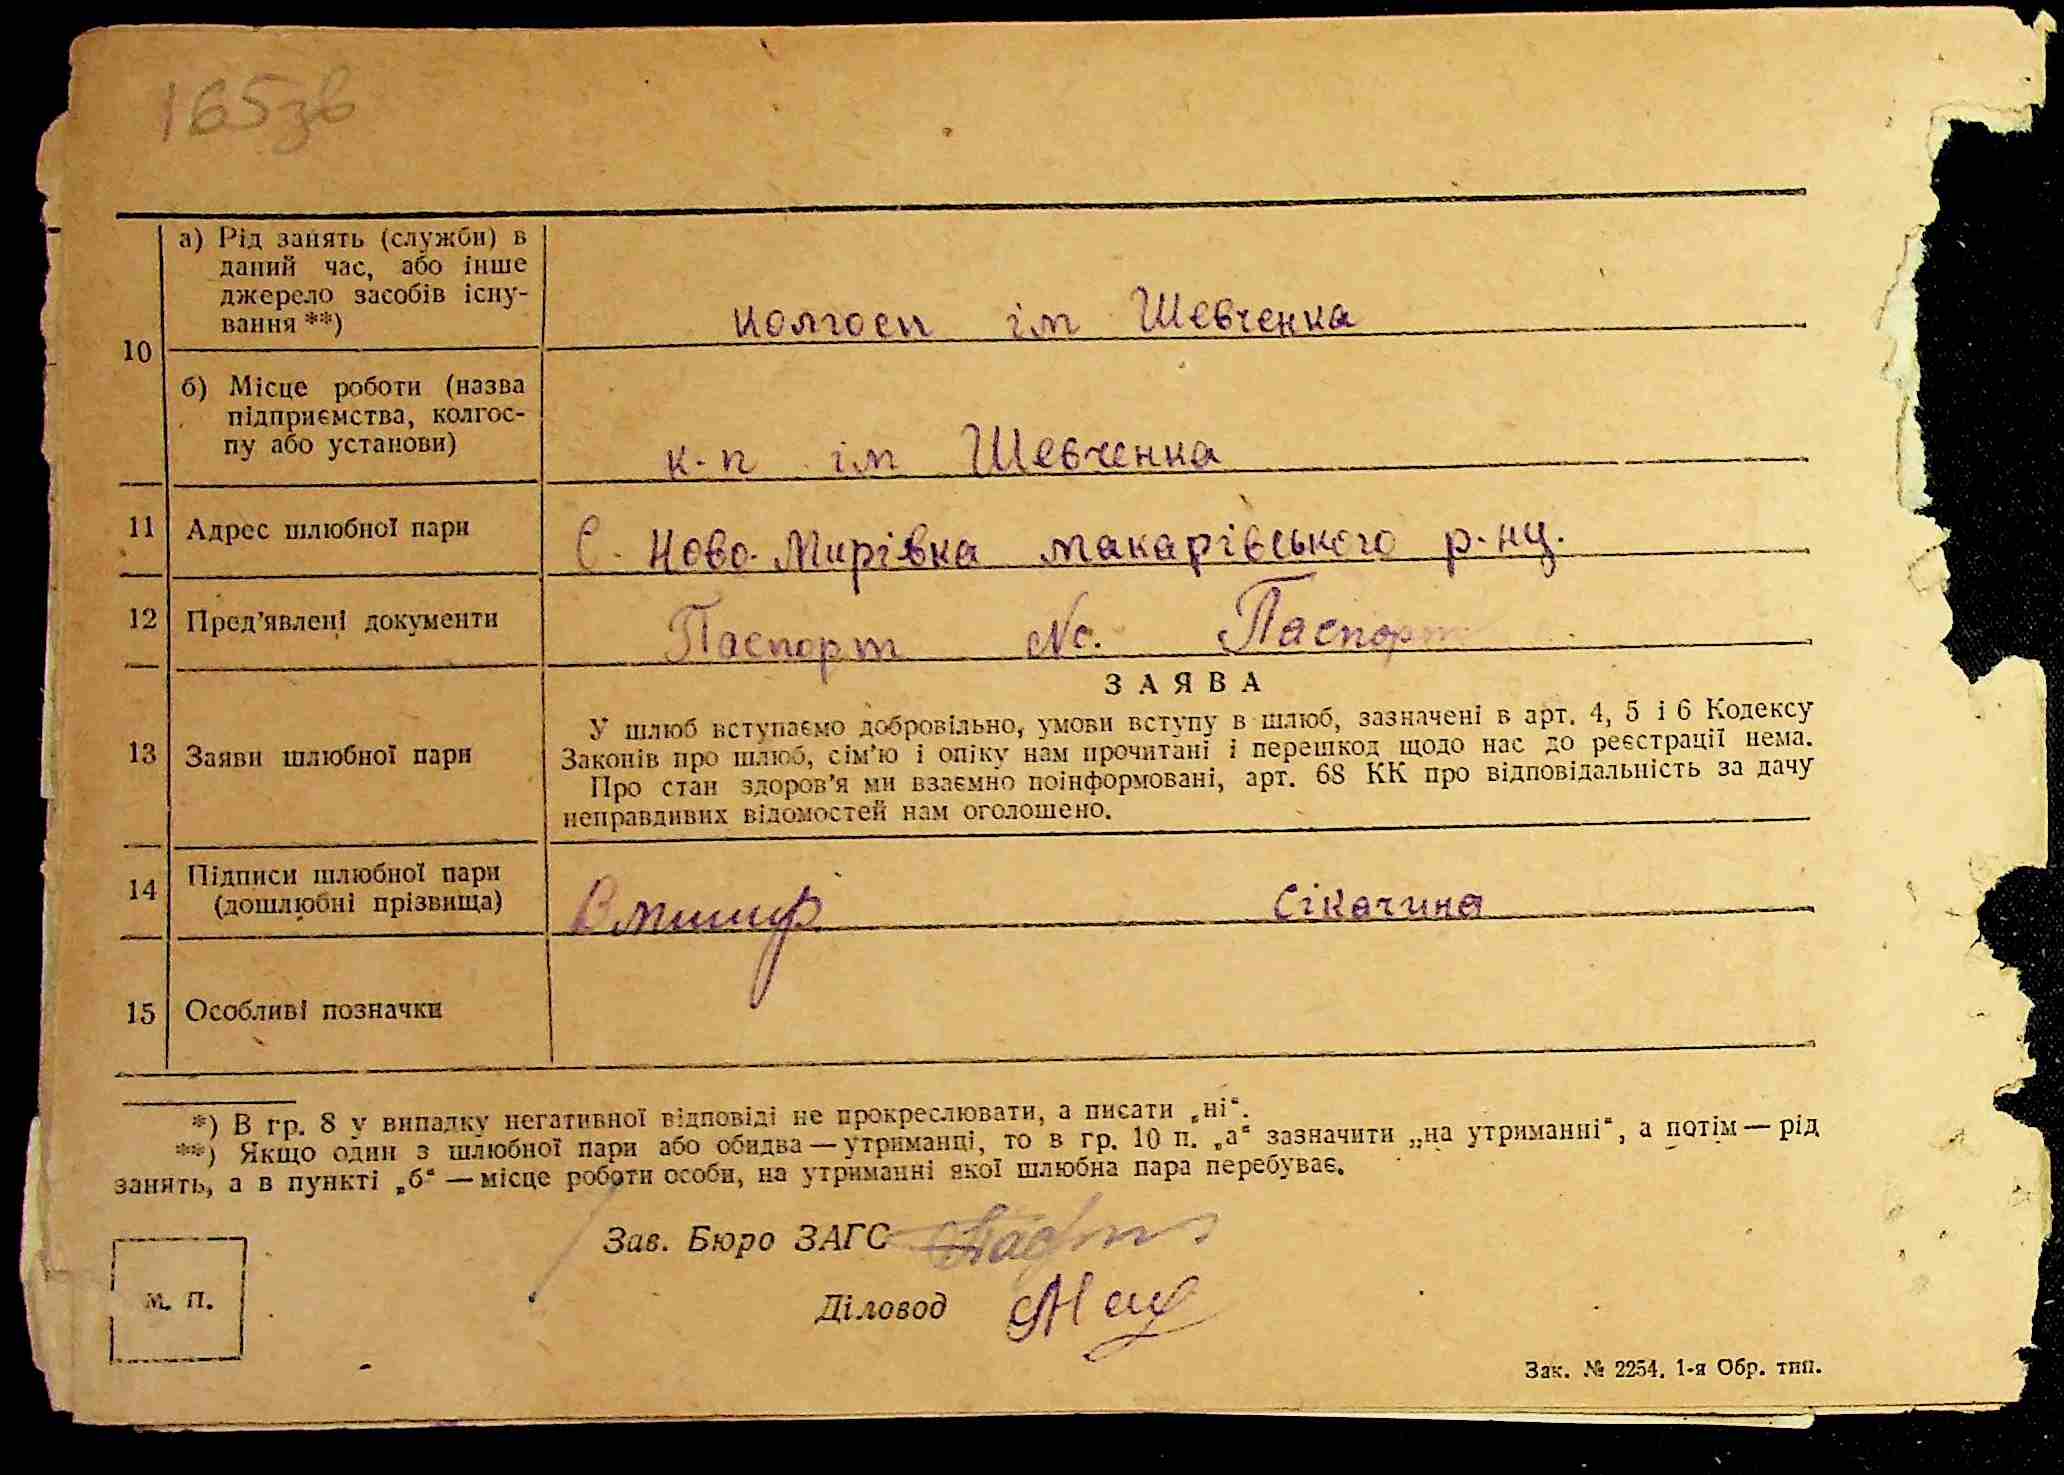 165зв
10
а) Рід занять (служби) в
даний час, або інше
джерело засобів існу-
вання **)
колгосп ім Шевченка
б) Місце роботи (назва
підприємства, колгос-
пу або установи)
к-п ім Шевченка
11 Адрес шлюбної пари
С. Ново-Мирівка макарівського р-ну.
12 Пред’явлені документи
Паспорт №. Паспорт
ЗАЯВА
13 Заяви шлюбної пари
У шлюб вступаємо добровільно, умови вступу в шлюб, зазначені в арт. 4, 5 і 6 Кодексу
Законів про шлюб, сім’ю і опіку нам прочитані і перешкод щодо нас до реєстрації нема.
Про стан здоров’я ми взаємно поінформовані, арт. 68 КК про відповідальність за дачу
неправдивих відомостей нам оголошено.
14 Підписи шлюбної пари
(дошлюбні прізвища)
Сікачина
15 Особливі позначки
*) В гр. 8 у випадку негативної відповіді не прокреслювати, а писати „ні“.
**) Якщо один з шлюбної пари або обидва — утриманці, то в гр. 10 п. „а“ зазначити „на утриманні“, а потім — рід
занять, а в пункті „б“ — місце роботи особи, на утриманні якої шлюбна пара перебуває.
Зав. Бюро ЗАГС
М. П.
Діловод
Зак. № 2254. 1-я Обр. тип.